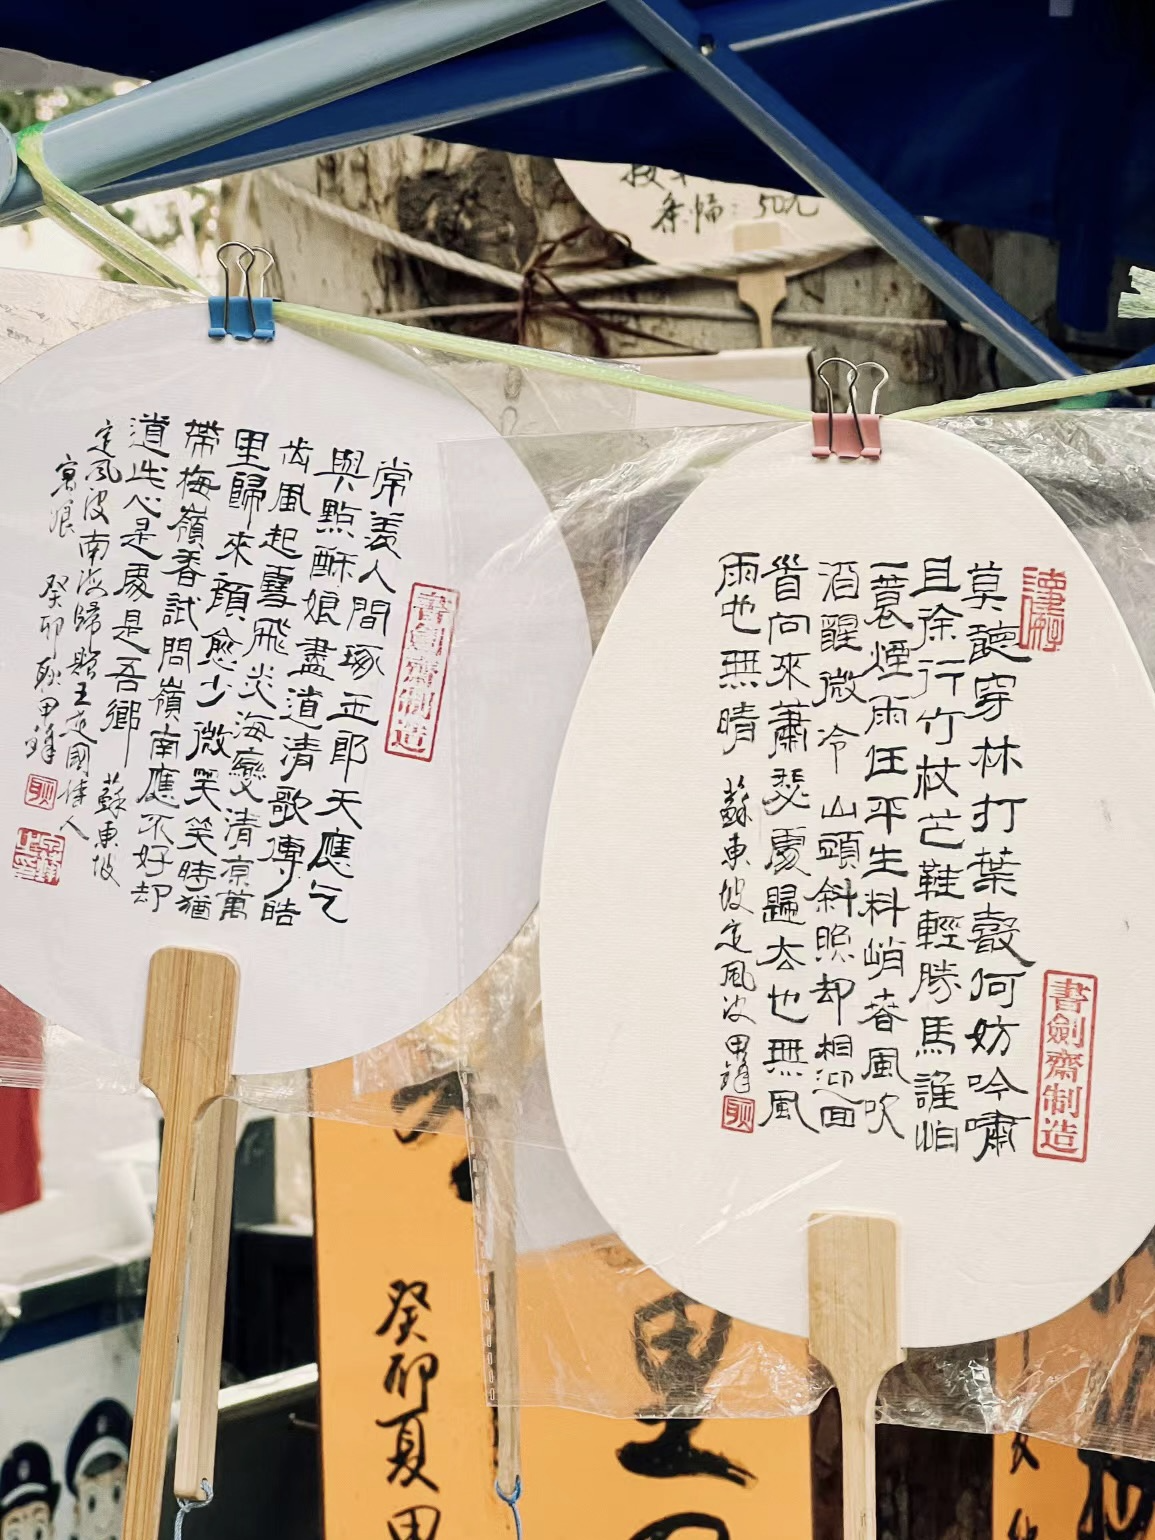 条幅：50元
書劍齋制造
常羡人間琢玉郎天應乞
與點酥娘盡道清歌傳皓
齿風起雪飛炎海變清凉萬
里歸來顏愈少微笑笑時猶
帶梅嶺香試問嶺南應不好却
道此心是處是吾鄉 蘇東坡
定風波南海歸贈王定國侍人
寓娘 癸卯 耿甲鋒
耿
書劍齋制造
莫聽穿林打葉聲何妨吟嘯
且徐行竹杖芒鞋輕勝馬誰怕
一蓑煙雨任平生料峭春風吹
酒醒微冷山頭斜照却相迎回
首向來蕭瑟處歸去也無風
雨也無晴 蘇東坡定風波 甲鋒
耿
癸卯夏甲